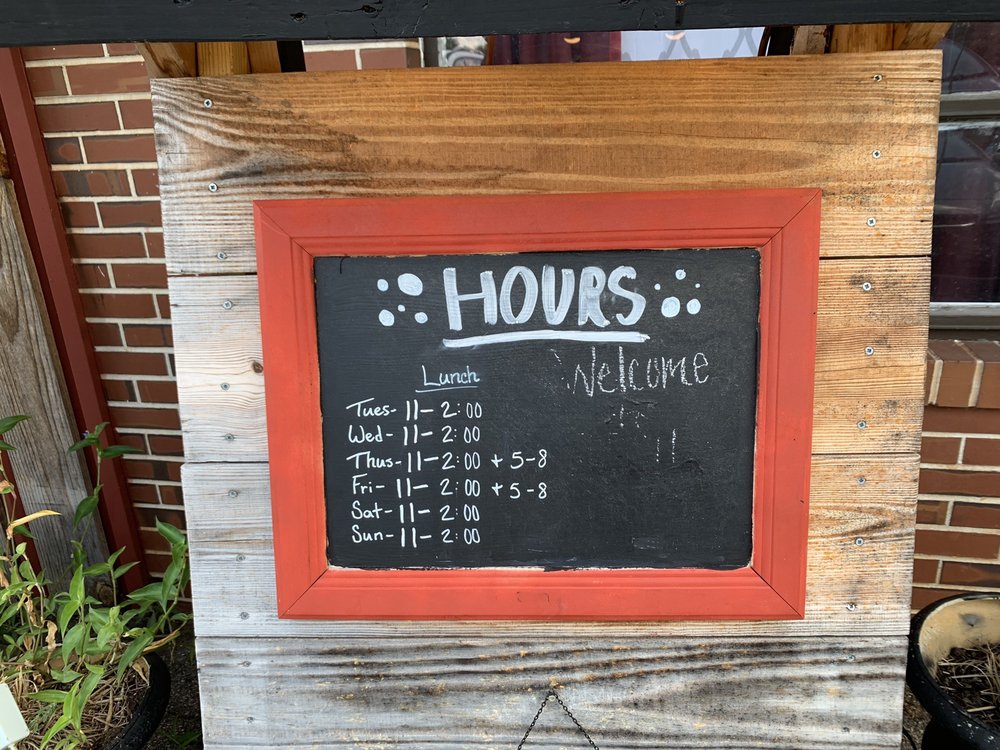 HOURS
Welcome
Lunch
Tues- 11- 2:00
Wed- 11- 2:00
Thus- 11- 2:00 + 5-8
Fri- 11- 2:00 + 5-8
Sat- 11- 2:00
Sun- 11- 2:00